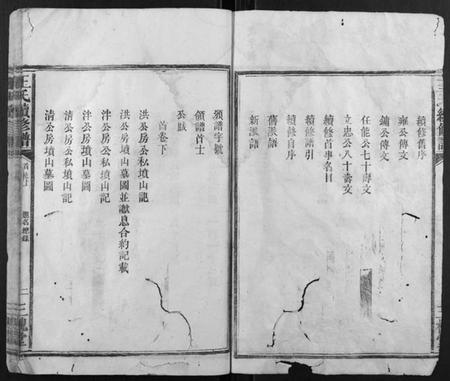 續修舊序
雍公傳文
鏽公傳文
任能公七十壽文
立忠公八十壽文
續修首事名目
續修譜引
續修自序
舊派語
新派語
領譜字號
領譜首士
公贓
首卷下
洪公房公私墳山記
洪公房墳山墓圖並獻息合約記載
泮公房公私墳山記
泮公房墳山墓圖
清公房公私墳山記
清公房墳山墓圖
王氏續修譜
首卷
總名總錄
三槐堂